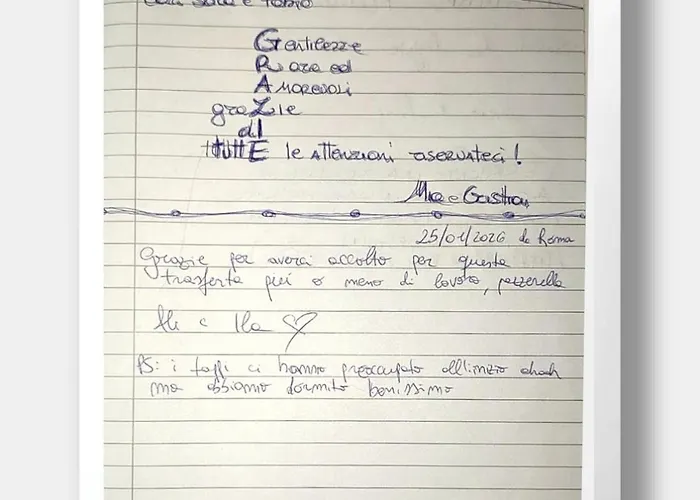 Cara Sara e Fabio
Gentilezze
Rare ed
Amorevoli
graZie
dI
tuttE le attenzioni riservateci!
Mia e Gastian
25/01/2026 da Roma
Grazie per averci accolto per questa
trasferta più o meno di lavoro, pazzerella
Ali e Ila ♡
PS: i tappi ci hanno preoccupato all'inizio ahah
ma abbiamo dormito benissimo